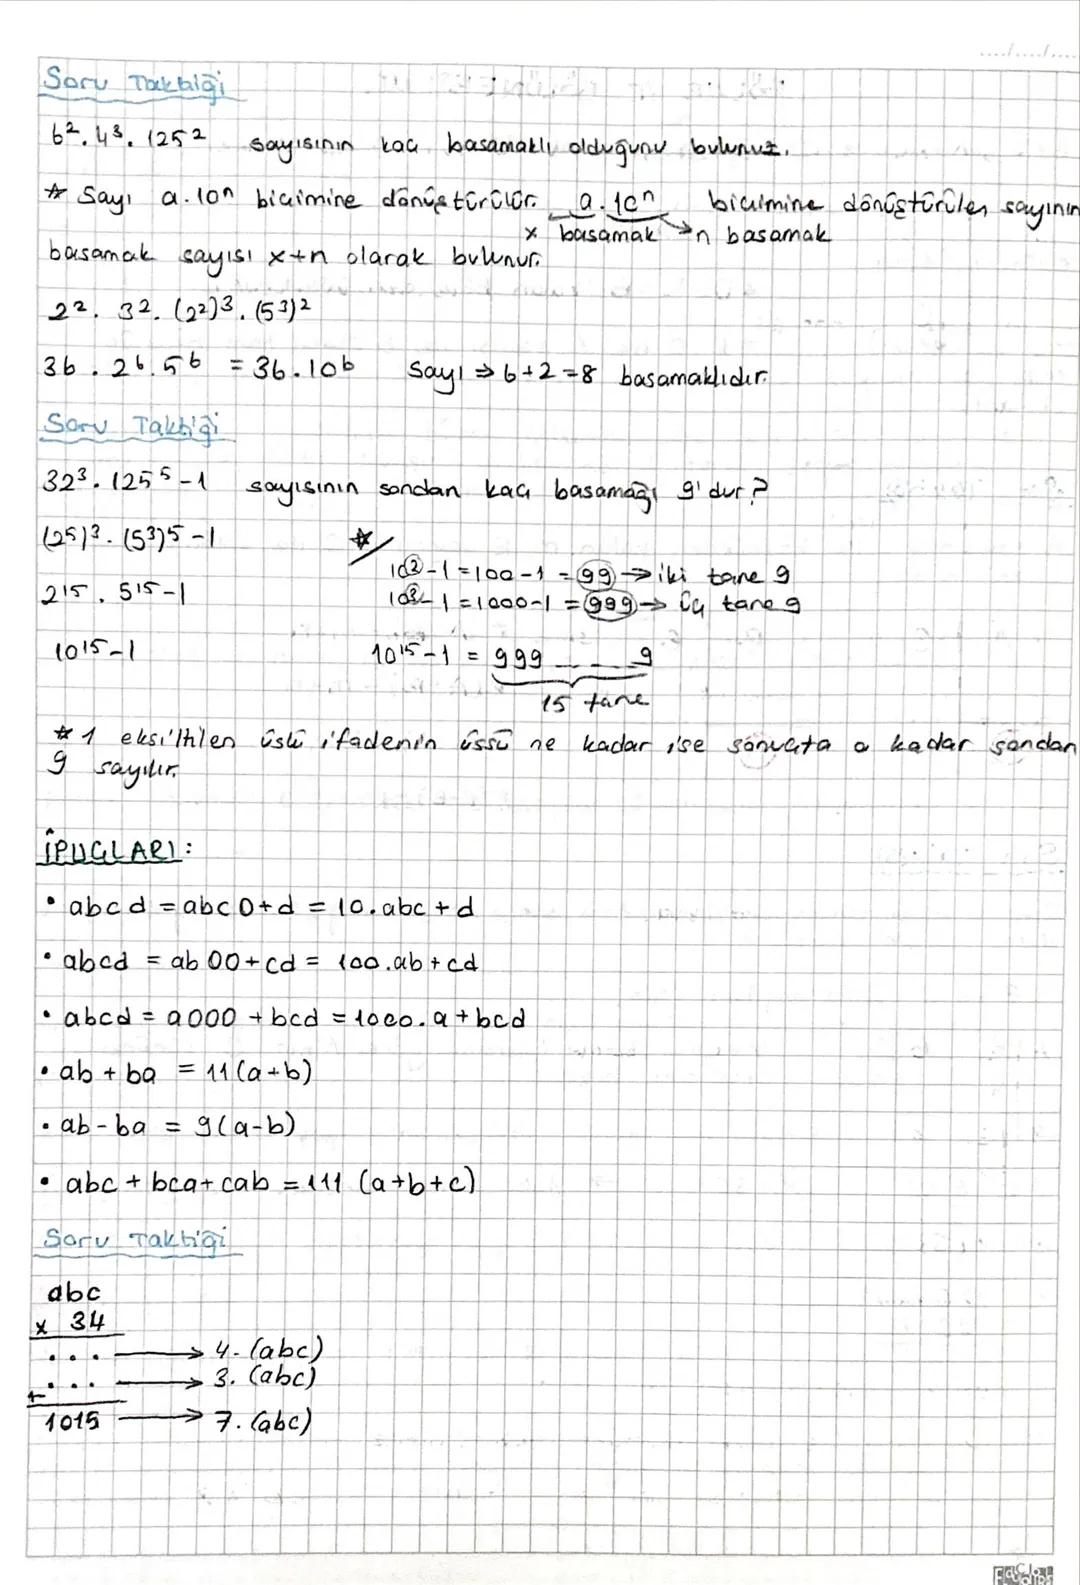 Soru Taktiği
6². 4³. 125² sayısının kaç basamaklı olduğunu bulunuz.
* Sayı a.10ⁿ biçimine dönüştürülür. a.10ⁿ biçimine dönüştürülen sayının
x basamak n basamak
basamak sayısı x+n olarak bulunur.
2². 3². (2²)³. (5³)²
36 . 2⁶. 5⁶ = 36.10⁶ Sayı ⇒ 6+2=8 basamaklıdır.
Soru Taktiği
32³. 125⁵-1 sayısının sondan kaç basamağı 9'dur?
(2⁵)³. (5³)⁵-1
10²-1=100-1=99→iki tane 9
2¹⁵. 5¹⁵-1
10³-1=1000-1=999→üç tane 9
10¹⁵-1 10¹⁵-1 = 999 _ _ _ 9
15 tane
* 1 eksiltilen üslü ifadenin üssü ne kadar ise sonuçta o kadar sondan
9 sayılır.
İPUÇLARI:
• abcd = abc0+d = 10.abc+d
• abcd = ab00+cd = 100.ab+cd
• abcd = a000+bcd = 1000.a+bcd
• ab+ba = 11(a+b)
• ab-ba = 9(a-b)
• abc+bca+cab = 111 (a+b+c)
Soru Taktiği
abc
x 34
... → 4.(abc)
+ ... → 3.(abc)
1015 → 7.(abc)